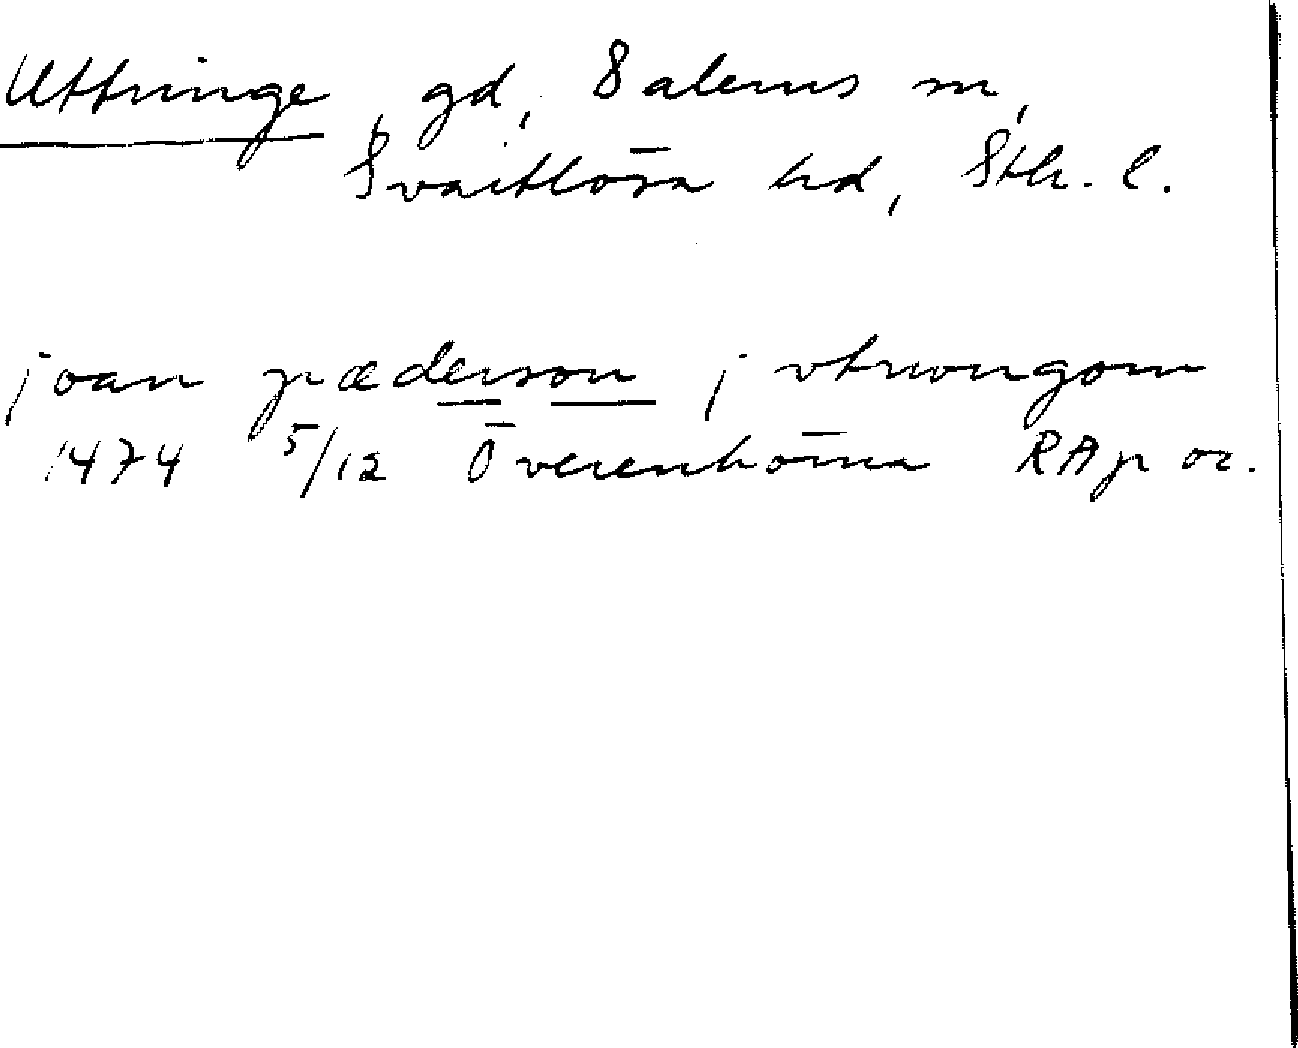 Uttringe, gd, Salems sn,
Svartlösa hd, Sth. l.
joan pæderson j vtrwngom
1474 5/12 Överenhörna RAp or.